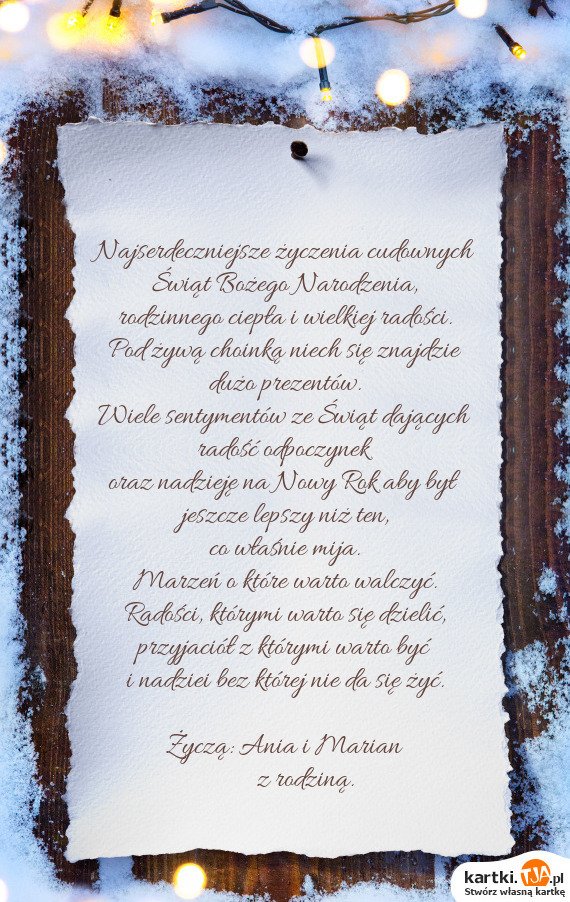 Najserdeczniejsze życzenia cudownych
Świąt Bożego Narodzenia,
rodzinnego ciepła i wielkiej radości.
Pod żywą choinką niech się znajdzie
dużo prezentów.
Wiele sentymentów ze Świąt dających
radość odpoczynek
oraz nadzieję na Nowy Rok aby był
jeszcze lepszy niż ten,
co właśnie mija.
Marzeń o które warto walczyć.
Radości, którymi warto się dzielić,
przyjaciół z którymi warto być
i nadziei bez której nie da się żyć.
Życzą: Ania i Marian
z rodziną.
kartki.TJA.pl
Stwórz własną kartkę